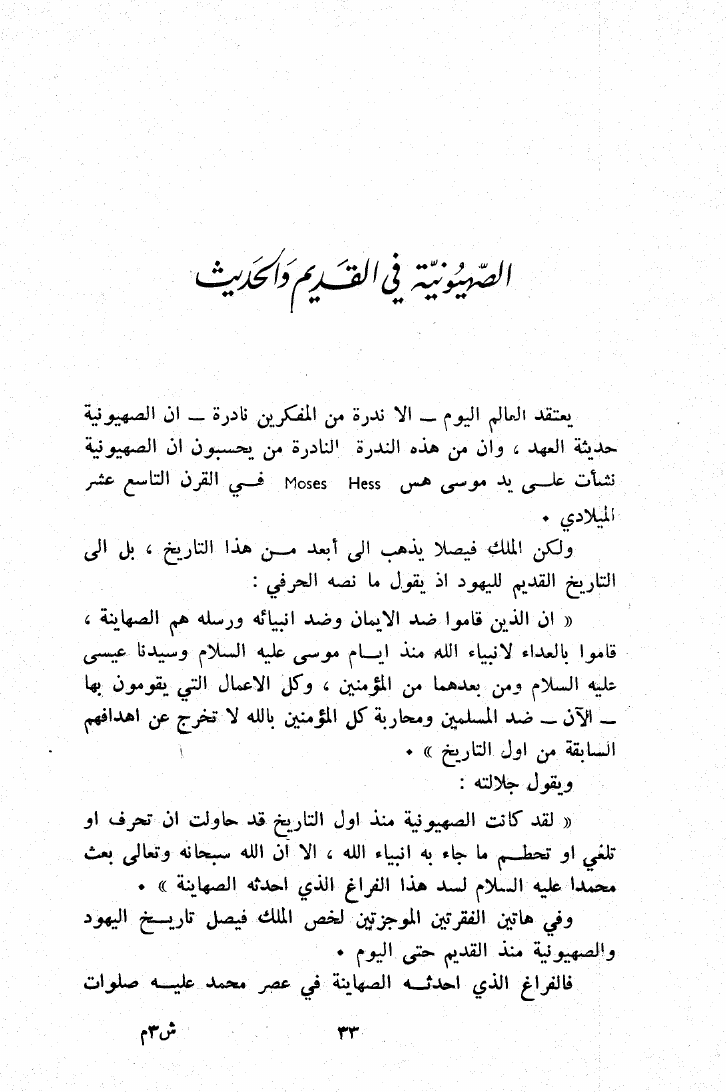 الصّهيُونيّة في القَديم وَالحَديث
يعتقد العالم اليوم ــ الا ندرة من المفكرين نادرة ــ ان الصهيونية
حديثة العهد ، وان من هذه الندرة النادرة من يحسبون ان الصهيونية
نشأت علـــى يد موسى هس Moses Hess فـــي القرن التاسع عشر
الميلادي .
ولكن الملك فيصلا يذهب الى أبعد مـــن هذا التاريخ ، بل الى
التاريخ القديم لليهود اذ يقول ما نصه الحرفي :
« ان الذين قاموا ضد الايمان وضد انبيائه ورسله هم الصهاينة ،
قاموا بالعداء لانبياء الله منذ ايـــام موسى عليه السلام وسيدنا عيسى
عليه السلام ومن بعدهما من المؤمنين ، وكل الاعمال التي يقومون بها
ــ الآن ــ ضد المسلمين ومحاربة كل المؤمنين بالله لا تخرج عن اهدافهم
السابقة من اول التاريخ » .
ويقول جلالته :
« لقد كانت الصهيونية منذ اول التاريخ قد حاولت ان تحرف او
تلغي او تحطـــم ما جاء به انبياء الله ، الا أن الله سبحانه وتعالى بعث
محمدا عليه السلام لسد هذا الفراغ الذي احدثه الصهاينة » .
وفي هاتين الفقرتين الموجزتين لخص الملك فيصل تاريـــخ اليهود
والصهيونية منذ القديم حتى اليوم .
فالفراغ الذي احدثـــه الصهاينة في عصر محمد عليـــه صلوات
٣٣ ش٣م